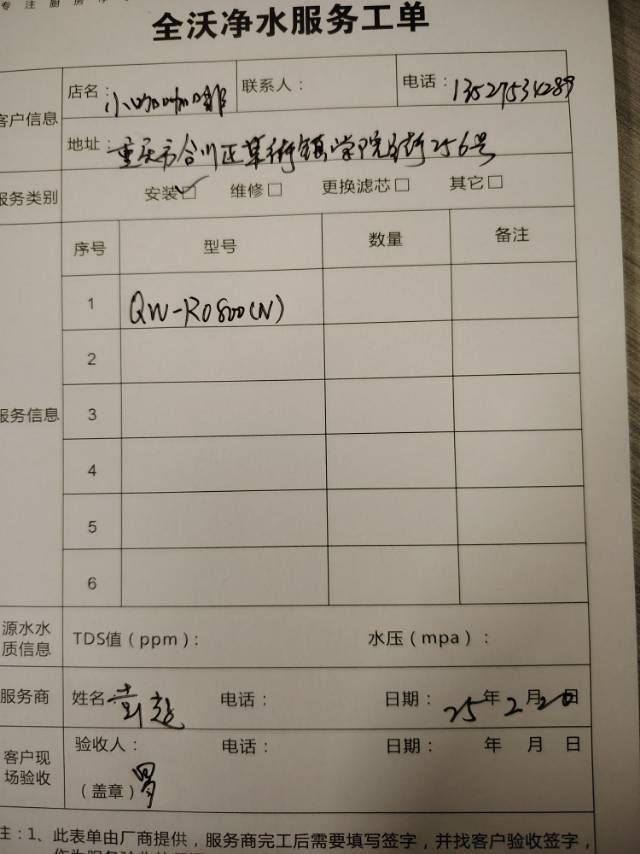 专注厨房净
全沃净水服务工单
客户信息
店名：小咖咖啡 联系人： 电话：13527534289
地址：重庆市合川区草街镇学院街256号
服务类别 安装☑ 维修□ 更换滤芯□ 其它□
服务信息
序号 型号 数量 备注
1 QW-RO800(N)
2
3
4
5
6
源水水质信息 TDS值（ppm）： 水压（mpa）：
服务商 姓名 电话： 日期：25年2月20日
客户现场验收 验收人： 电话： 日期： 年 月 日
（盖章）罗
注：1、此表单由厂商提供，服务商完工后需要填写签字，并找客户验收签字，